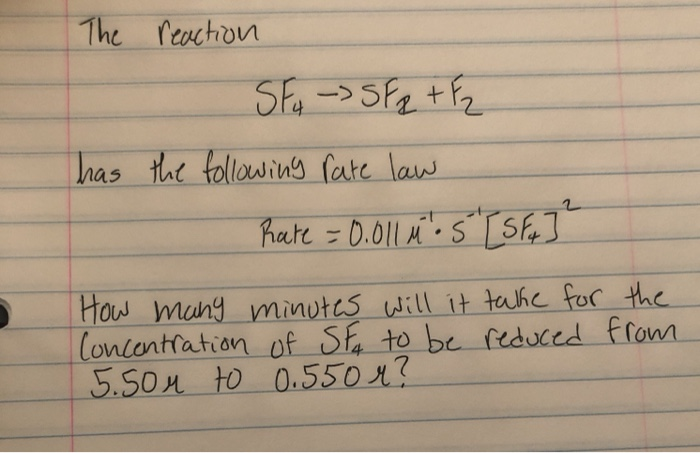 The reaction
SF₄ -> SF₂ + F₂
has the following rate law
Rate = 0.011 M⁻¹·s⁻¹[SF₄]²
How many minutes will it take for the
Concentration of SF₄ to be reduced from
5.50M to 0.550M?